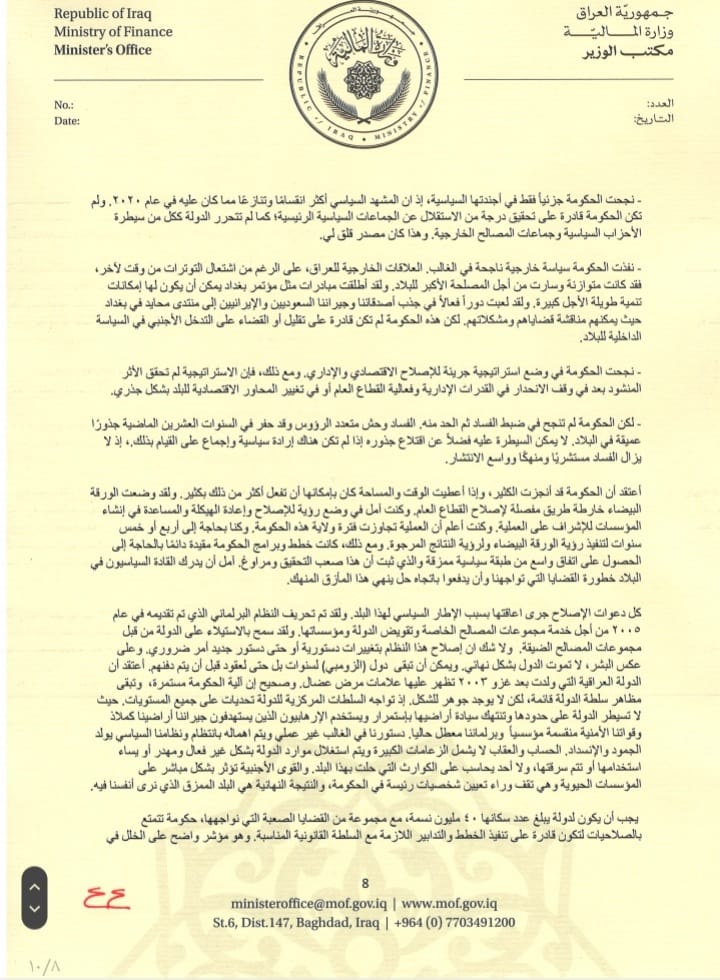 Republic of Iraq
Ministry of Finance
Minister's Office
جمهوريّة العراق
وزارة المـــاليّـــة
مكتب الوزير
وزارة المالية
REPUBLIC OF IRAQ MINISTRY OF FINANCE
No.:
Date:
العدد:
التاريخ:
- نجحت الحكومة جزئياً فقط في أجندتها السياسية، إذ ان المشهد السياسي أكثر انقسامًا وتنازعًا مما كان عليه في عام ٢٠٢٠. ولم
تكن الحكومة قادرة على تحقيق درجة من الاستقلال عن الجماعات السياسية الرئيسية؛ كما لم تتحرر الدولة ككل من سيطرة
الأحزاب السياسية وجماعات المصالح الخارجية. وهذا كان مصدر قلق لي.
- نفذت الحكومة سياسة خارجية ناجحة في الغالب. العلاقات الخارجية للعراق، على الرغم من اشتعال التوترات من وقت لآخر،
فقد كانت متوازنة وسارت من أجل المصلحة الأكبر للبلاد. ولقد أطلقت مبادرات مثل مؤتمر بغداد يمكن أن يكون لها إمكانات
تنمية طويلة الأجل كبيرة. ولقد لعبت دوراً فعالاً في جذب أصدقائنا وجيراننا السعوديين والإيرانيين إلى منتدى محايد في بغداد
حيث يمكنهم مناقشة قضاياهم ومشكلاتهم. لكن هذه الحكومة لم تكن قادرة على تقليل أو القضاء على التدخل الأجنبي في السياسة
الداخلية للبلاد.
- نجحت الحكومة في وضع استراتيجية جريئة للإصلاح الاقتصادي والإداري. ومع ذلك، فإن الاستراتيجية لم تحقق الأثر
المنشود بعد في وقف الانحدار في القدرات الإدارية وفعالية القطاع العام أو في تغيير المحاور الاقتصادية للبلد بشكل جذري.
- لكن الحكومة لم تنجح في ضبط الفساد ثم الحد منه. الفساد وحش متعدد الرؤوس وقد حفر في السنوات العشرين الماضية جذورًا
عميقة في البلاد. لا يمكن السيطرة عليه فضلاً عن اقتلاع جذوره إذا لم تكن هناك إرادة سياسية وإجماع على القيام بذلك.، إذ لا
يزال الفساد مستشريًا ومنهكًا وواسع الانتشار.
أعتقد أن الحكومة قد أنجزت الكثير، وإذا أعطيت الوقت والمساحة كان بإمكانها أن تفعل أكثر من ذلك بكثير. ولقد وضعت الورقة
البيضاء خارطة طريق مفصلة لإصلاح القطاع العام. وكنت آمل في وضع رؤية للإصلاح وإعادة الهيكلة والمساعدة في إنشاء
المؤسسات للإشراف على العملية. وكنت أعلم أن العملية تجاوزت فترة ولاية هذه الحكومة. وكنا بحاجة إلى أربع أو خمس
سنوات لتنفيذ رؤية الورقة البيضاء ولرؤية النتائج المرجوة. ومع ذلك، كانت خطط وبرامج الحكومة مقيدة دائمًا بالحاجة إلى
الحصول على اتفاق واسع من طبقة سياسية ممزقة والذي ثبت أن هذا صعب التحقيق ومراوغ. آمل أن يدرك القادة السياسيون في
البلاد خطورة القضايا التي تواجهنا وأن يدفعوا باتجاه حل ينهي هذا المأزق المنهك.
كل دعوات الإصلاح جرى اعاقتها بسبب الإطار السياسي لهذا البلد. ولقد تم تحريف النظام البرلماني الذي تم تقديمه في عام
٢٠٠٥ من أجل خدمة مجموعات المصالح الخاصة وتقويض الدولة ومؤسساتها. ولقد سمح بالاستيلاء على الدولة من قبل
مجموعات المصالح الضيقة. ولا شك ان إصلاح هذا النظام بتغييرات دستورية أو حتى دستور جديد أمر ضروري. وعلى
عكس البشر، لا تموت الدول بشكل نهائي. ويمكن أن تبقى دول (الزومبي) لسنوات بل حتى لعقود قبل أن يتم دفنهم. أعتقد أن
الدولة العراقية التي ولدت بعد غزو ٢٠٠٣ تظهر عليها علامات مرض عضال. وصحيح إن آلية الحكومة مستمرة، وتبقى
مظاهر سلطة الدولة قائمة، لكن لا يوجد جوهر للشكل. إذ تواجه السلطات المركزية للدولة تحديات على جميع المستويات. حيث
لا تسيطر الدولة على حدودها وتنتهك سيادة أراضيها بإستمرار ويستخدم الإرهابيون الذين يستهدفون جيراننا أراضينا كملاذ
وقواتنا الأمنية منقسمة مؤسسياً وبرلماننا معطل حاليا. دستورنا في الغالب غير عملي ويتم اهماله بانتظام ونظامنا السياسي يولد
الجمود والإنسداد. الحساب والعقاب لا يشمل الزعامات الكبيرة ويتم استغلال موارد الدولة بشكل غير فعال ومهدر أو يساء
استخدامها أو تتم سرقتها، ولا أحد يحاسب على الكوارث التي حلت بهذا البلد. والقوى الأجنبية تؤثر بشكل مباشر على
المؤسسات الحيوية وهي تقف وراء تعيين شخصيات رئيسة في الحكومة، والنتيجة النهائية هي البلد الممزق الذي نرى أنفسنا فيه.
يجب أن يكون لدولة يبلغ عدد سكانها ٤٠ مليون نسمة، مع مجموعة من القضايا الصعبة التي نواجهها، حكومة تتمتع
بالصلاحيات لتكون قادرة على تنفيذ الخطط والتدابير اللازمة مع السلطة القانونية المناسبة. وهو مؤشر واضح على الخلل في
8
ministeroffice@mof.gov.iq | www.mof.gov.iq
St.6, Dist.147, Baghdad, Iraq | +964 (0) 7703491200
١٠/٨